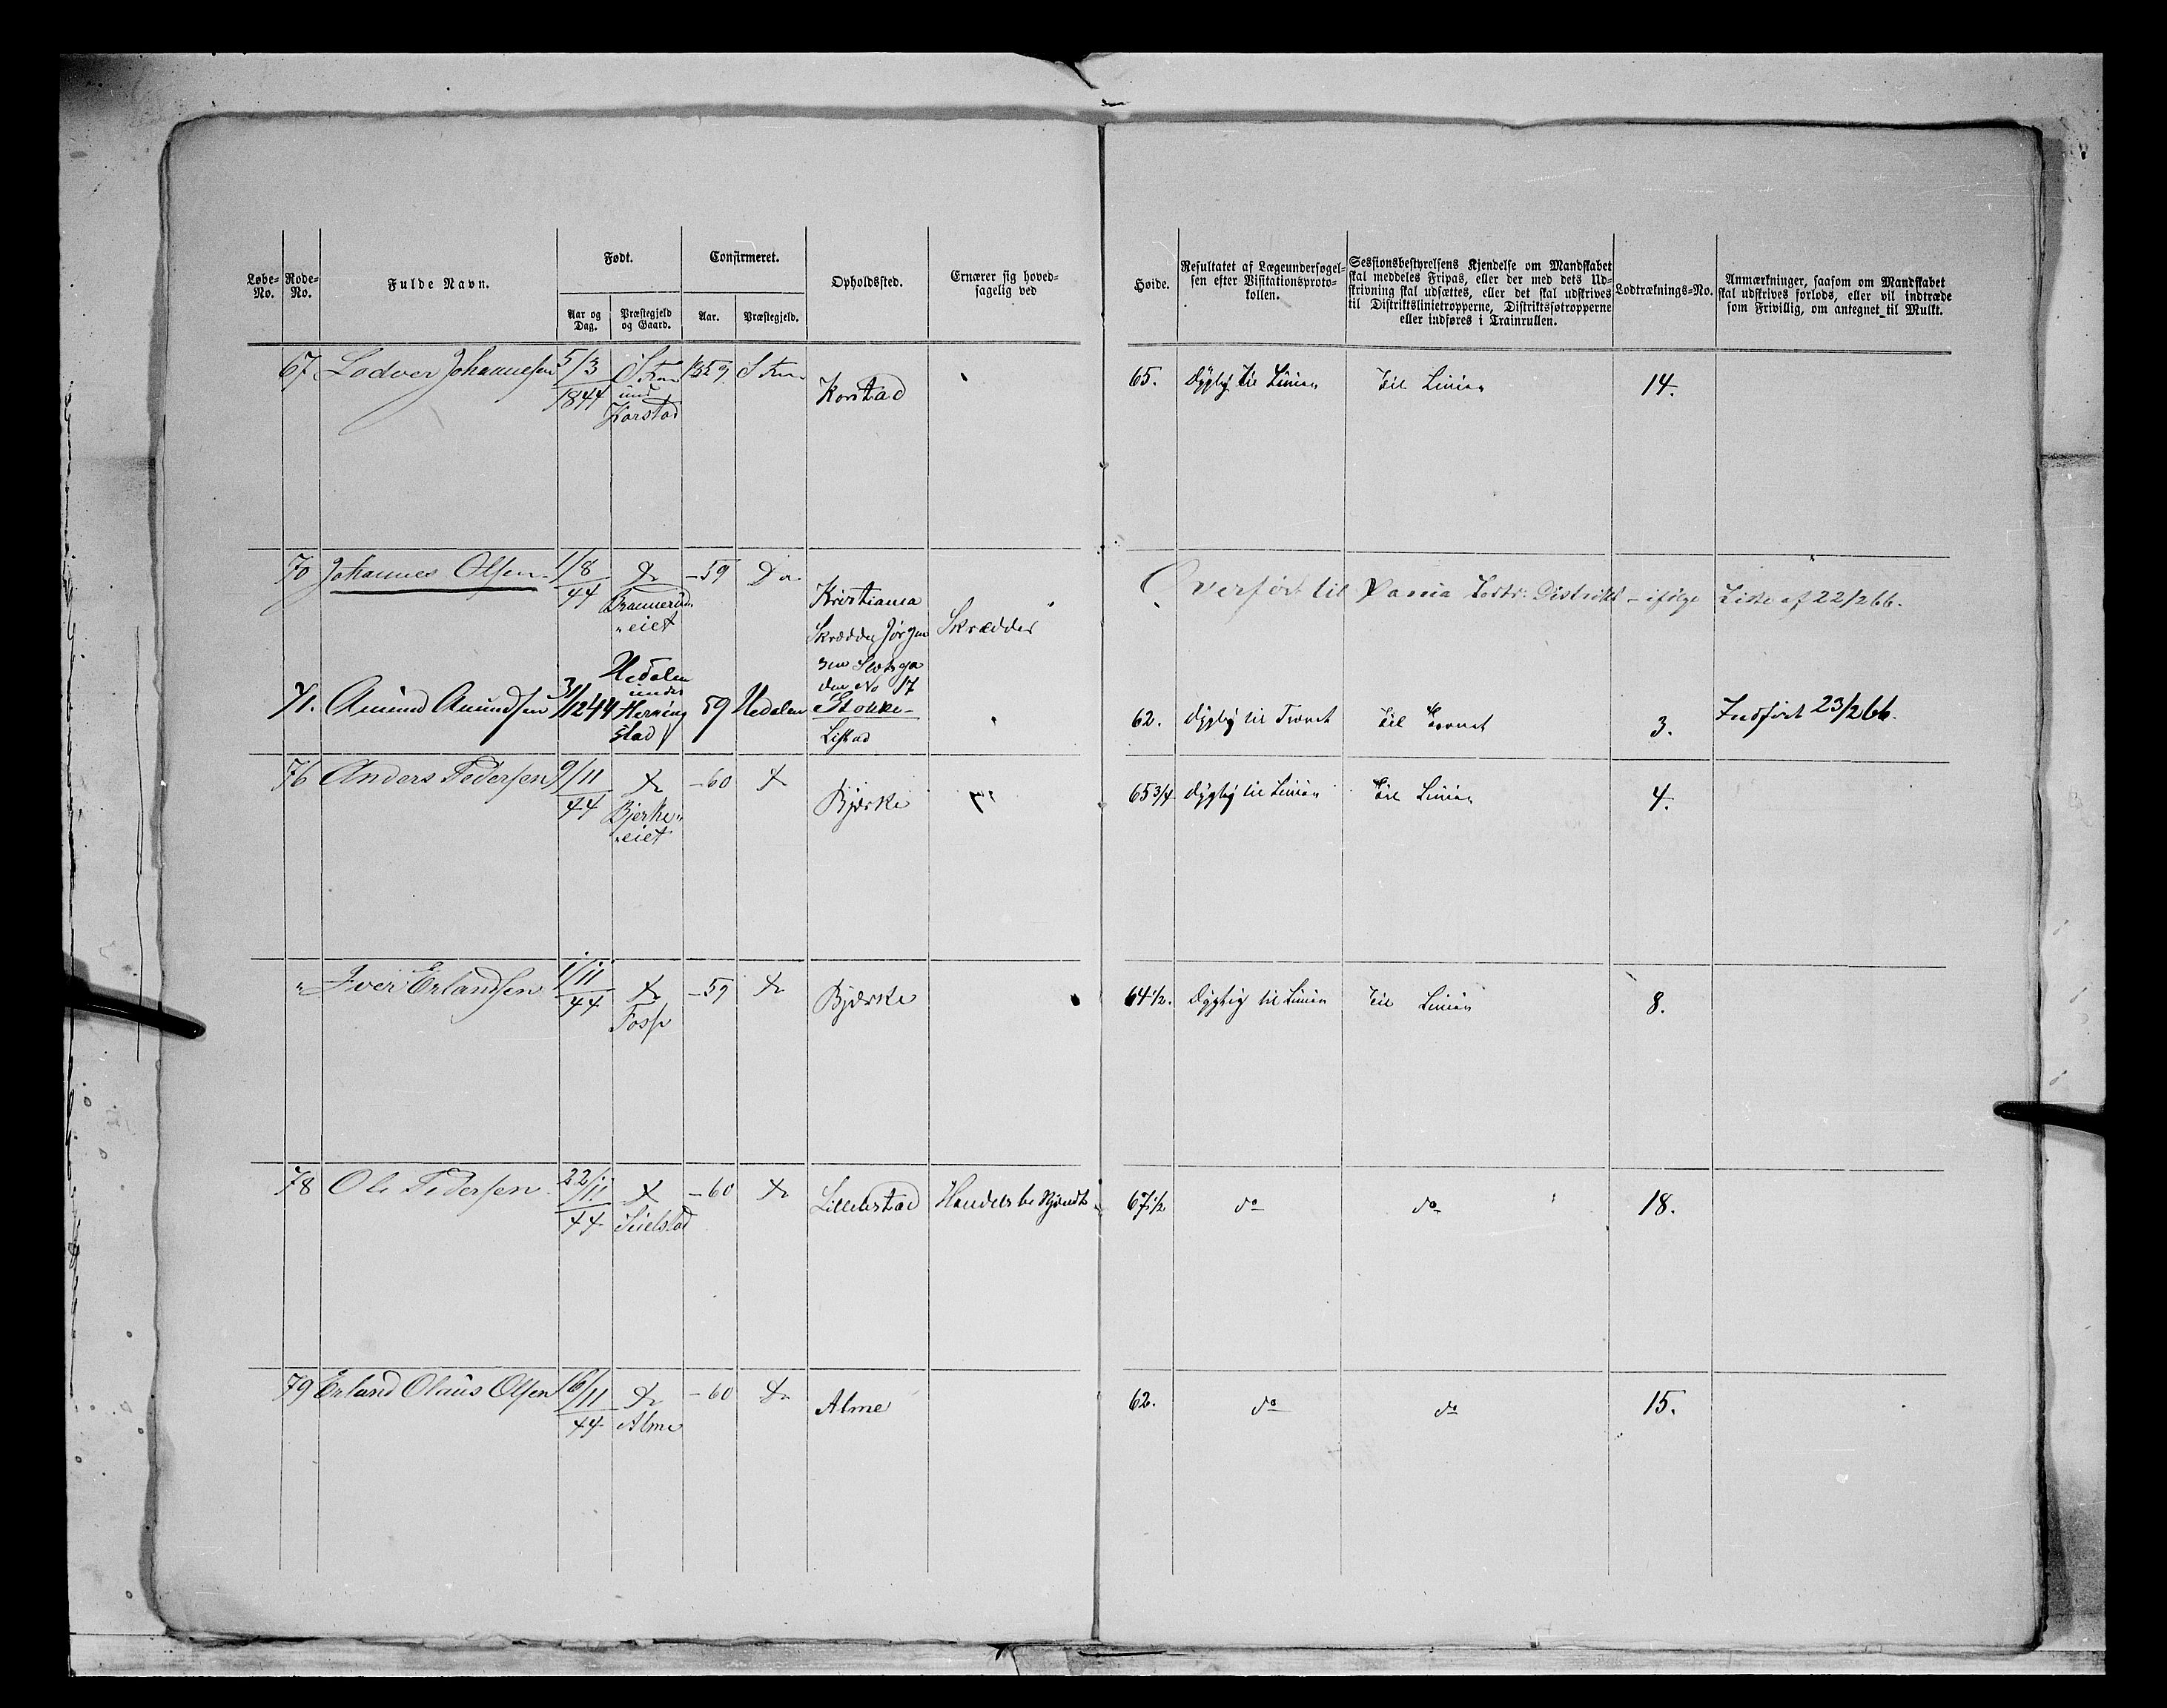 Løbe-No.
Rode-No.
Fulde Navn.
Født.
Aar og Dag.
Præstegjeld og Gaard.
Confirmeret.
Aar.
Præstegjeld.
Opholdssted.
Ernærer sig hoved-
sagelig ved
Høide.
Resultatet af Lægeundersøgel-
sen efter Visitationsproto-
kollen.
Sessionsbestyrelsens Kjendelse om Mandskabet
skal meddeles Fripas, eller der med dets Ud-
skrivning skal udsættes, eller det skal udskrives
til Distriktslinietropperne, Distriktsfotropperne
eller indføres i Trainrullen.
Lodtræknings-No.
Anmærkninger, saasom om Mandskabet
skal udskrives forlods, eller vil indtræde
som Frivillig, om antegnet til Mulkt.
67 Lodver Johannesen 5/3 1844
und
Korstad
1859
Korstad
65. dygtig til Linien Til Linien 14.
70 Johannes Olsen 1/8 44 Do
eiet
-59 Do
Kristiania
Skrædder Jørgen
No 17
Skrædder
Overført til Distrikt ifølge Liste af 22/2 66.
71. Amund Amundsen 3/12 44
Hedalen
under
Herning
stad
59 Hedalen
Stokke-
Listad
62. dygtig til Trainet Til Trainet 3. Indført 23/2 66.
76 Anders Pedersen 9/11 44 Do
Bjerke
eiet
-60 Do Bjerke
65 3/4 dygtig til Linien Til Linien 4.
" Iver Erlandsen 1/11 44 Do
Fosse
-59 Do Bjerke
64 1/2. dygtig til Linien Til Linien 8.
78 Ole Pedersen 22/11 44 Do
-60 Do Lillelstad Handelsbetjendt
67 1/2 do do 18.
79 Erland Olaus Olsen 16/11 44 Do
Alme
-60 Do Alme
62. do do 15.